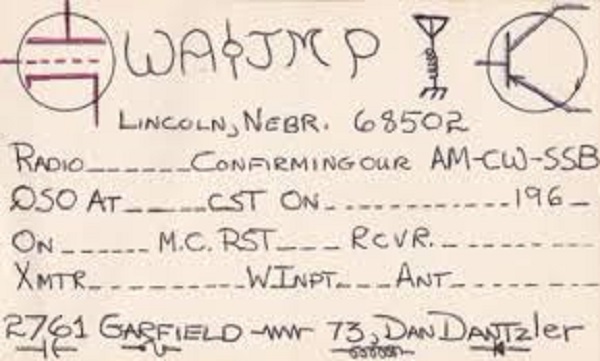 WAØJMP
LINCOLN, NEBR. 68502
RADIO______CONFIRMING OUR AM-CW-SSB
QSO AT_____CST ON____________196_
ON______M.C. RST___ RCVR.__________
XMTR__________WINPT.___ANT__________
2761 GARFIELD 73, DAN DANTZler